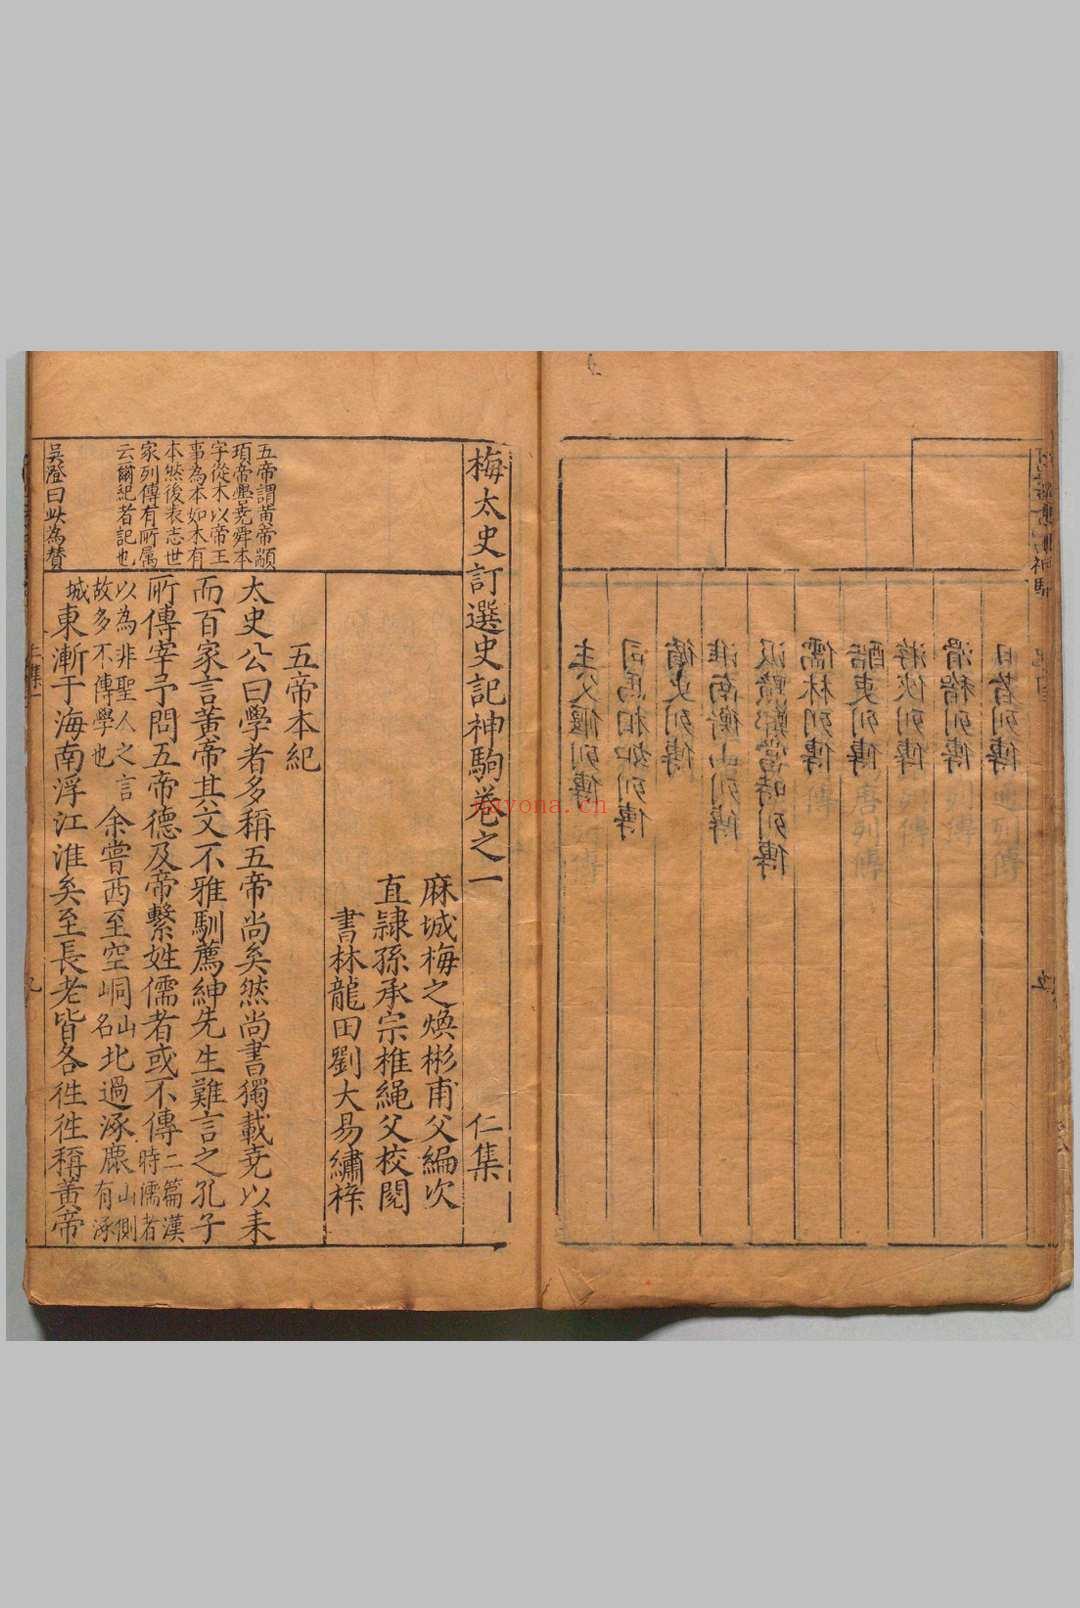 梅太史訂選史記神駒卷之一 仁集
麻城梅之煥彬甫父編次
直隸孫承宗椎繩父校閱
書林龍田劉大易繡梓
五帝本紀
太史公曰學者多稱五帝尚矣然尚書獨載堯以来
而百家言黃帝其文不雅馴薦紳先生難言之孔子
所傳宰予問五帝德及帝繫姓儒者或不傳二篇漢時儒者
以為非聖人之言故多不傳學也余嘗西至空峒山名北過涿鹿山側有涿
城東漸于海南浮江淮矣至長老皆各徃徃稱黃帝
五帝謂黄帝顓
項帝嚳堯舜本
字從木以帝王
事為本如木有
本然後表志世
家列傳有所属
云爾紀者記也
吳澄曰此為贊
日者列傳
滑稽列傳
游俠列傳
酷吏列傳
儒林列傳
汲黯鄭當時列傳
淮南衡山列傳
循吏列傳
司馬相如列傳
主父偃列傳
auyona.cn